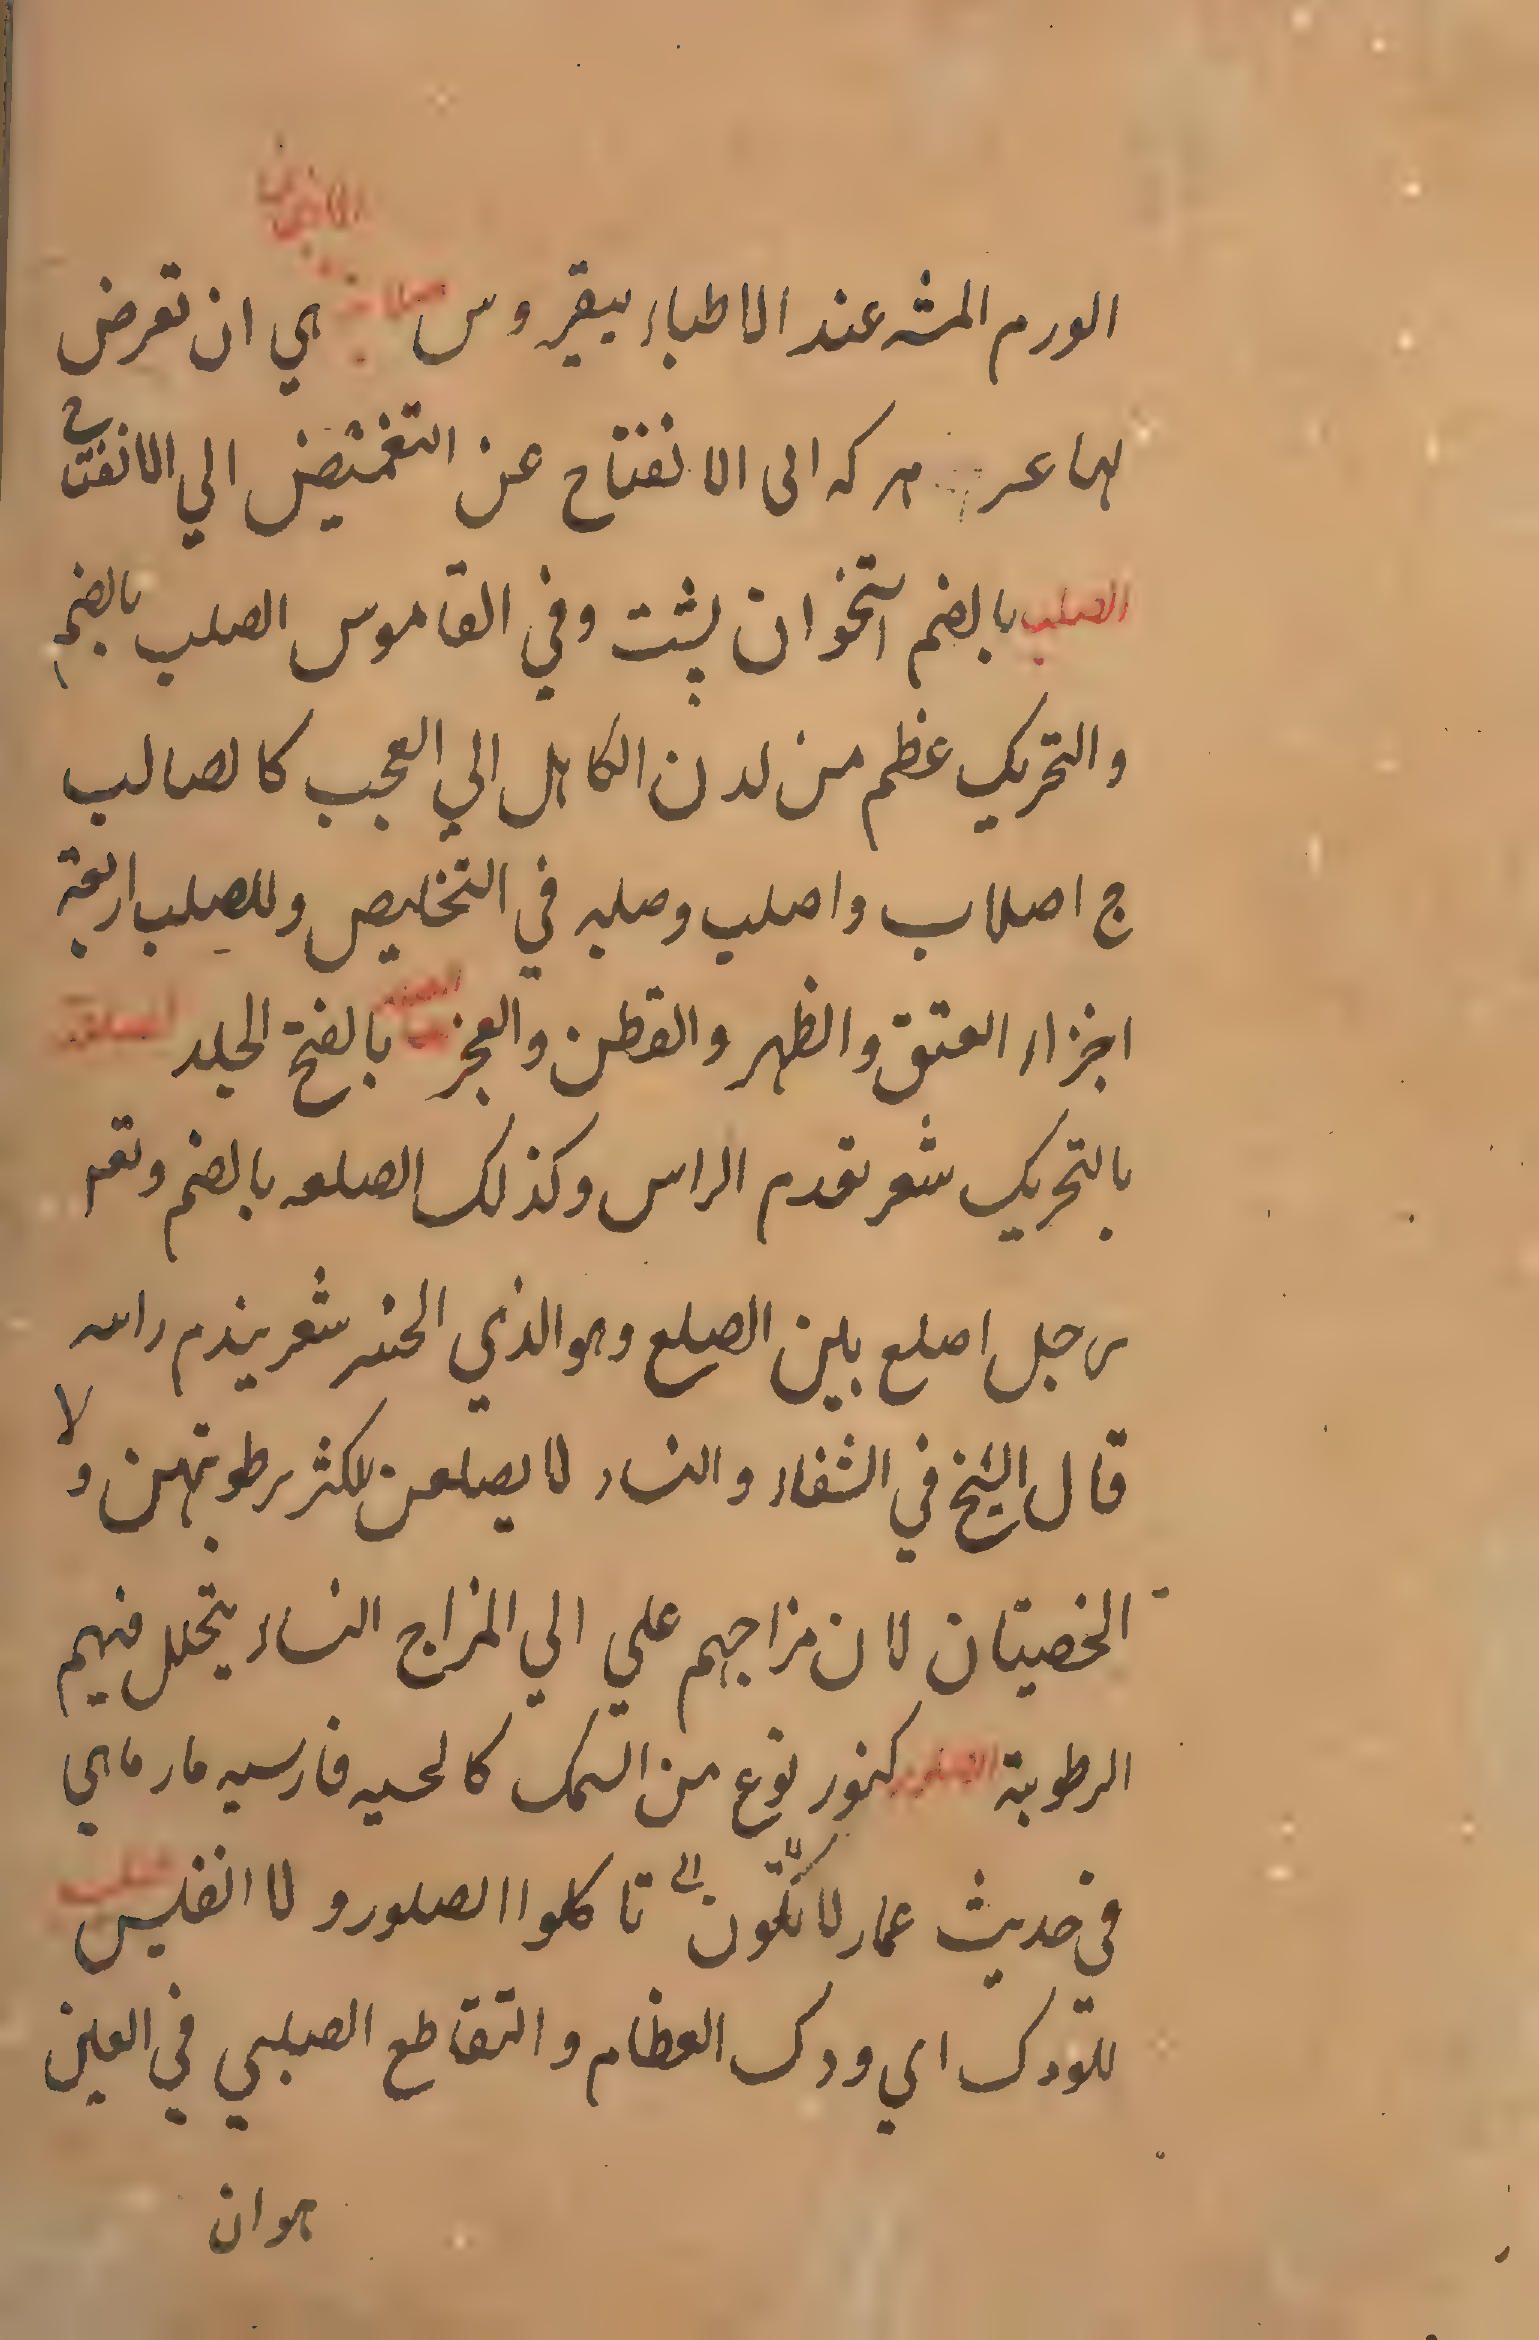 الاجفان
الورم المشه عند الاطباء بيقروس صلابة هي ان تعرض
لها عسر حركه الى الانفتاح عن التغميض الي الانفتاح
الصلب بالضم استخوان پشت وفي القاموس الصلب بالضم
والتحريك عظم من لدن الكاهل الي العجب كالصالب
ج اصلاب واصلب وصلبه في التخليص وللصلب اربعة
اجزاء العنق والظهر والقطن والعجز بالفتح الجلد
بالتحريك شعر تقدم الراس وكذلك الصلعه بالضم وتعم
رجل اصلع بلين الصلع وهو الذي الحنسر شعر يندم راسه
قال الشيخ في الشفاء والنساء لا يصلعن لكثر رطوبتهن ولا
الخصيتان لان مزاجهم علي الي المزاج النساء يتحلل فيهم
الرطوبة الصلور كنور نوع من السمك كالحيه فارسيه مارماهي
في حديث عمار لا تاكلوا الصلور ولا انفليس صليب
للودك اي ودك العظام والتقاطع الصليبي في العين
هوان